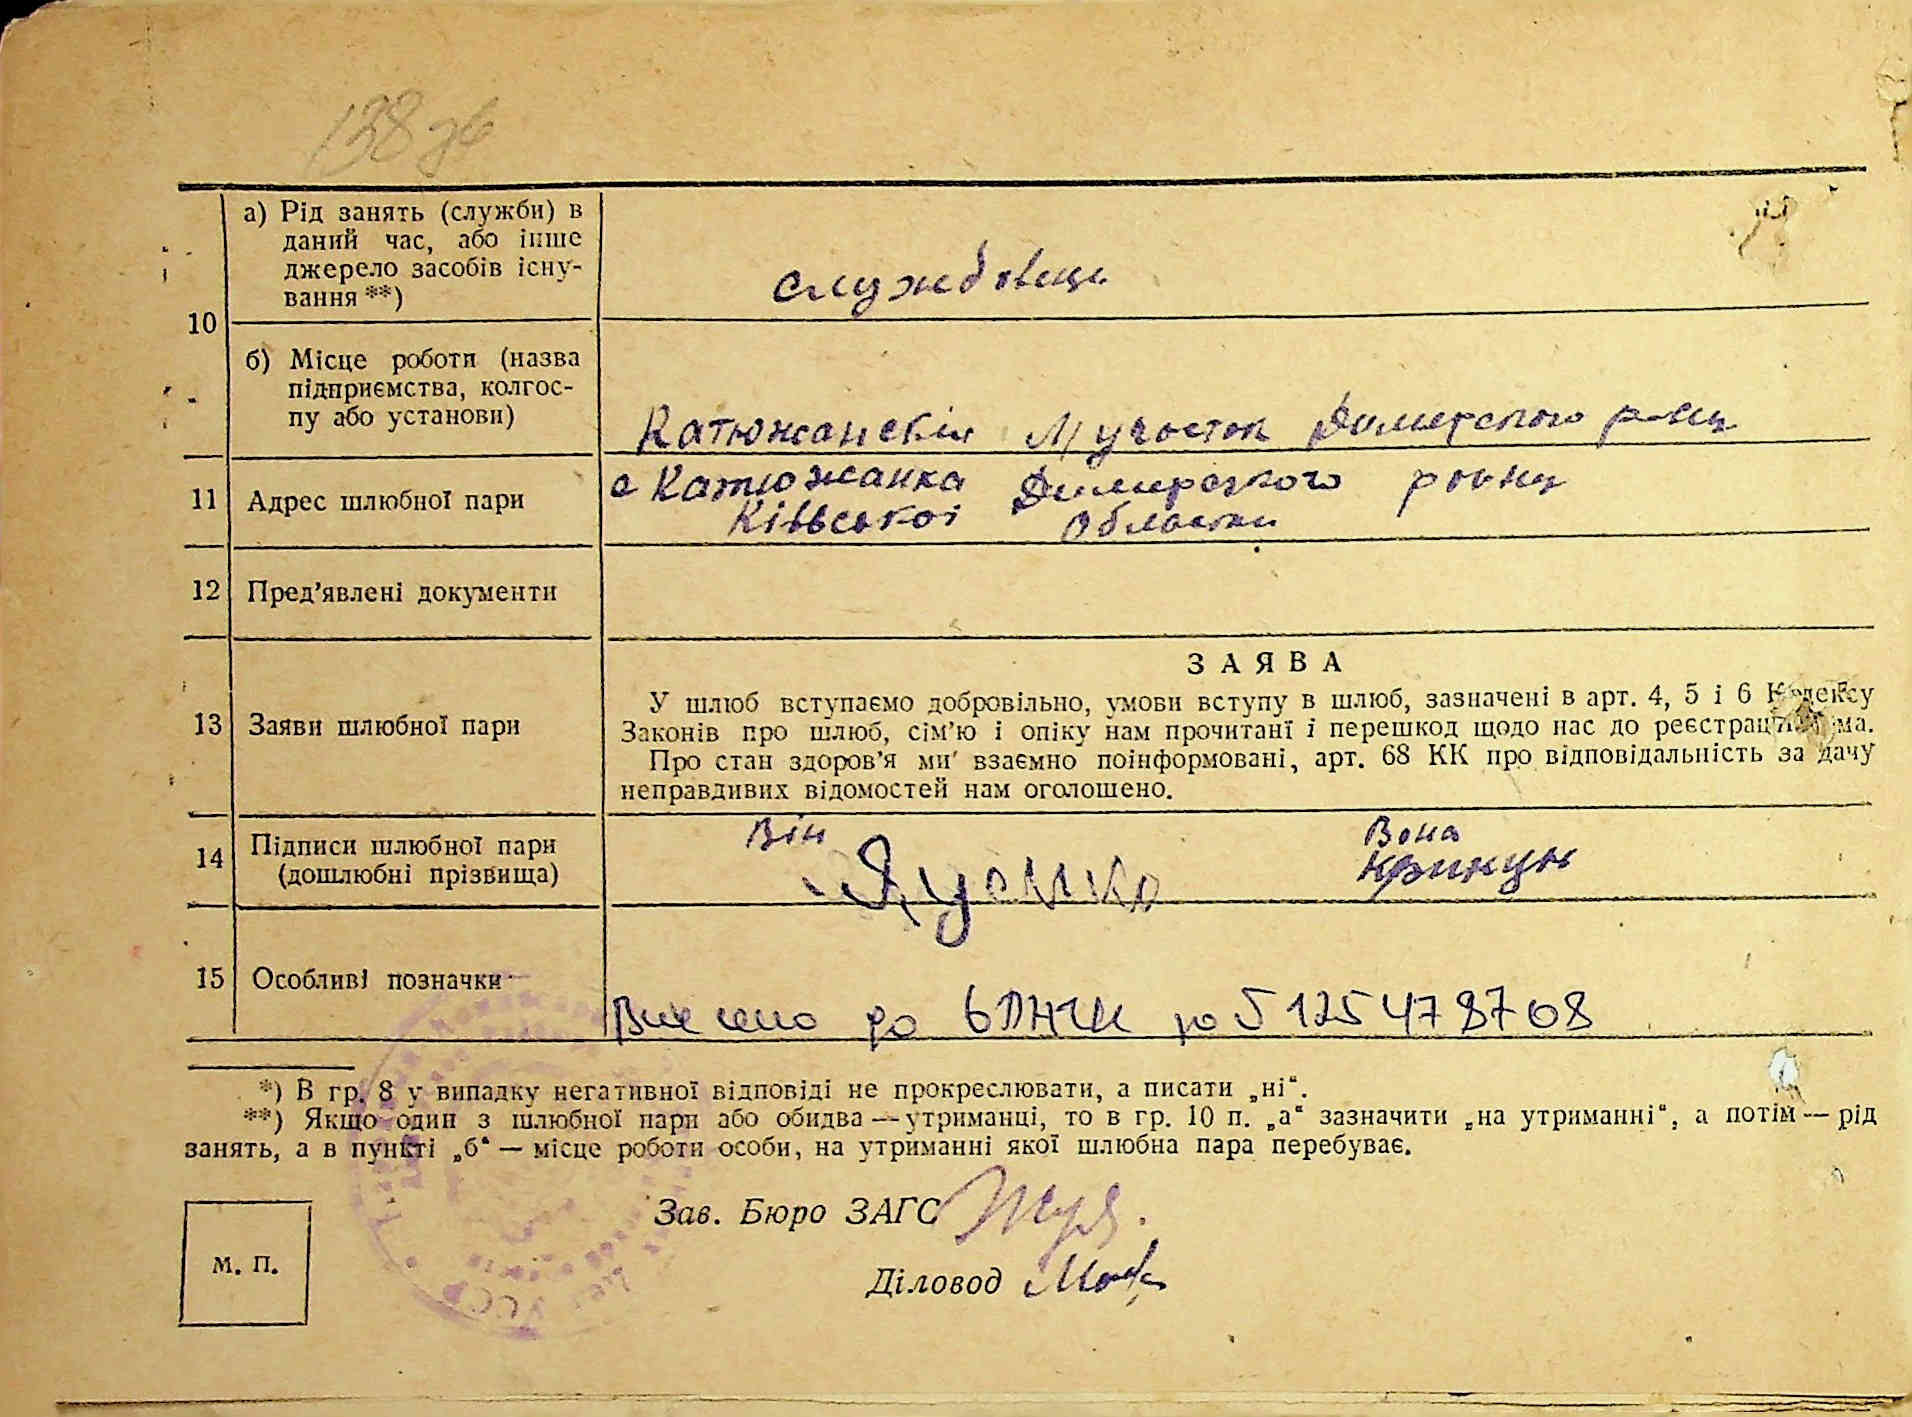 138 зв
а) Рід занять (служби) в
даний час, або інше
джерело засобів існу-
вання **)
службовець
10
б) Місце роботи (назва
підприємства, колгос-
пу або установи)
Катюжанский М/участок Димерского р-ну
11
Адрес шлюбної пари
с Катюжанка Димерского р-ону
Київської Області
12
Пред’явлені документи
ЗАЯВА
13
Заяви шлюбної пари
У шлюб вступаємо добровільно, умови вступу в шлюб, зазначені в арт. 4, 5 і 6 Кодексу
Законів про шлюб, сім’ю і опіку нам прочитані і перешкод щодо нас до реєстрації нема.
Про стан здоров’я ми взаємно поінформовані, арт. 68 КК про відповідальність за дачу
неправдивих відомостей нам оголошено.
14
Підписи шлюбної пари
(дошлюбні прізвища)
Він
Вона
Крикун
15
Особливі позначки
Внесено до за 5 1254787 08
*) В гр. 8 у випадку негативної відповіді не прокреслювати, а писати „ні“.
**) Якщо один з шлюбної пари або обидва — утриманці, то в гр. 10 п. „а“ зазначити „на утриманні“, а потім — рід
занять, а в пункті „б“ — місце роботи особи, на утриманні якої шлюбна пара перебуває.
Зав. Бюро ЗАГС
М. П.
Діловод